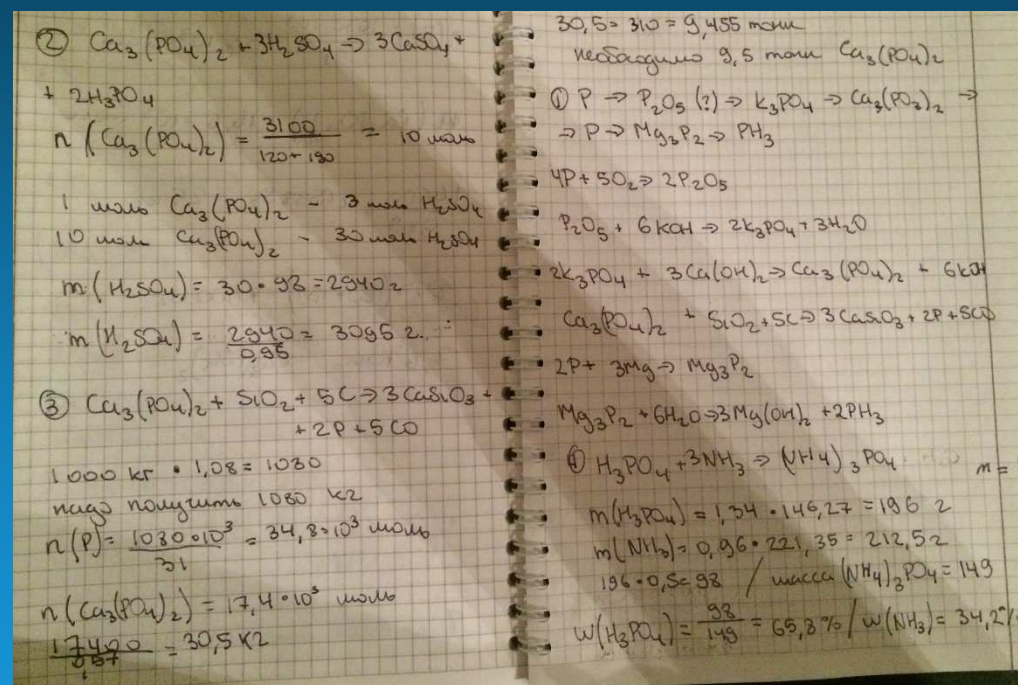 ② Ca₃(PO₄)₂ + 3H₂SO₄ → 3CaSO₄ +
+ 2H₃PO₄
n(Ca₃(PO₄)₂) = 3100/(120+190) = 10 моль
1 моль Ca₃(PO₄)₂ - 3 моль H₂SO₄
10 моль Ca₃(PO₄)₂ - 30 моль H₂SO₄
m(H₂SO₄) = 30 · 98 = 2940 г
m(H₂SO₄) = 2940/0,95 = 3095 г.
③ Ca₃(PO₄)₂ + SiO₂ + 5C → 3CaSiO₃ +
+ 2P + 5CO
1000 кг · 1,08 = 1080
надо получить 1080 кг
n(P) = 1080·10³/31 = 34,8·10³ моль
n(Ca₃(PO₄)₂) = 17,4·10³ моль
17400/0,57 = 30,5 кг
30,5 = 310 = 9,455 тонн
необходимо 9,5 тонн Ca₃(PO₄)₂
① P → P₂O₅ (?) → K₃PO₄ → Ca₃(PO₃)₂ →
→ P → Mg₃P₂ → PH₃
4P + 5O₂ → 2P₂O₅
P₂O₅ + 6KOH → 2K₃PO₄ + 3H₂O
2K₃PO₄ + 3Ca(OH)₂ → Ca₃(PO₄)₂ + 6KOH
Ca₃(PO₄)₂ + SiO₂ + 5C → 3CaSiO₃ + 2P + 5CO
2P + 3Mg → Mg₃P₂
Mg₃P₂ + 6H₂O → 3Mg(OH)₂ + 2PH₃
① H₃PO₄ + 3NH₃ → (NH₄)₃PO₄ m=
m(H₃PO₄) = 1,34 · 146,27 = 196 г
m(NH₃) = 0,96 · 221,35 = 212,5 г
196 · 0,5 = 98 / масса (NH₄)₃PO₄ = 149
w(H₃PO₄) = 98/149 = 65,8 % / w(NH₃) = 34,2%